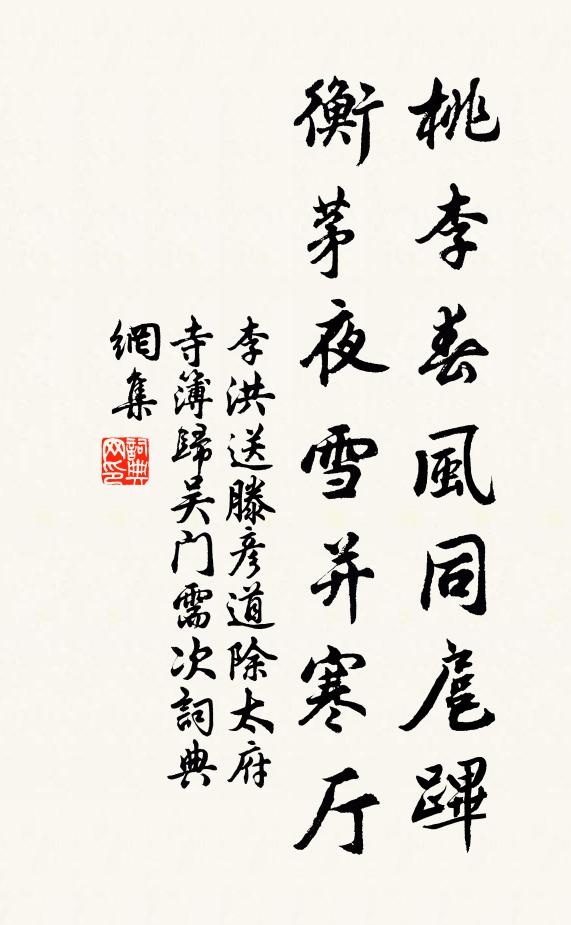 桃李春風同扈蹕
衡茅夜雪并寒厅
李洪送滕彦道除太府
寺簿歸吴门需次詞典
網集
詞典
网印